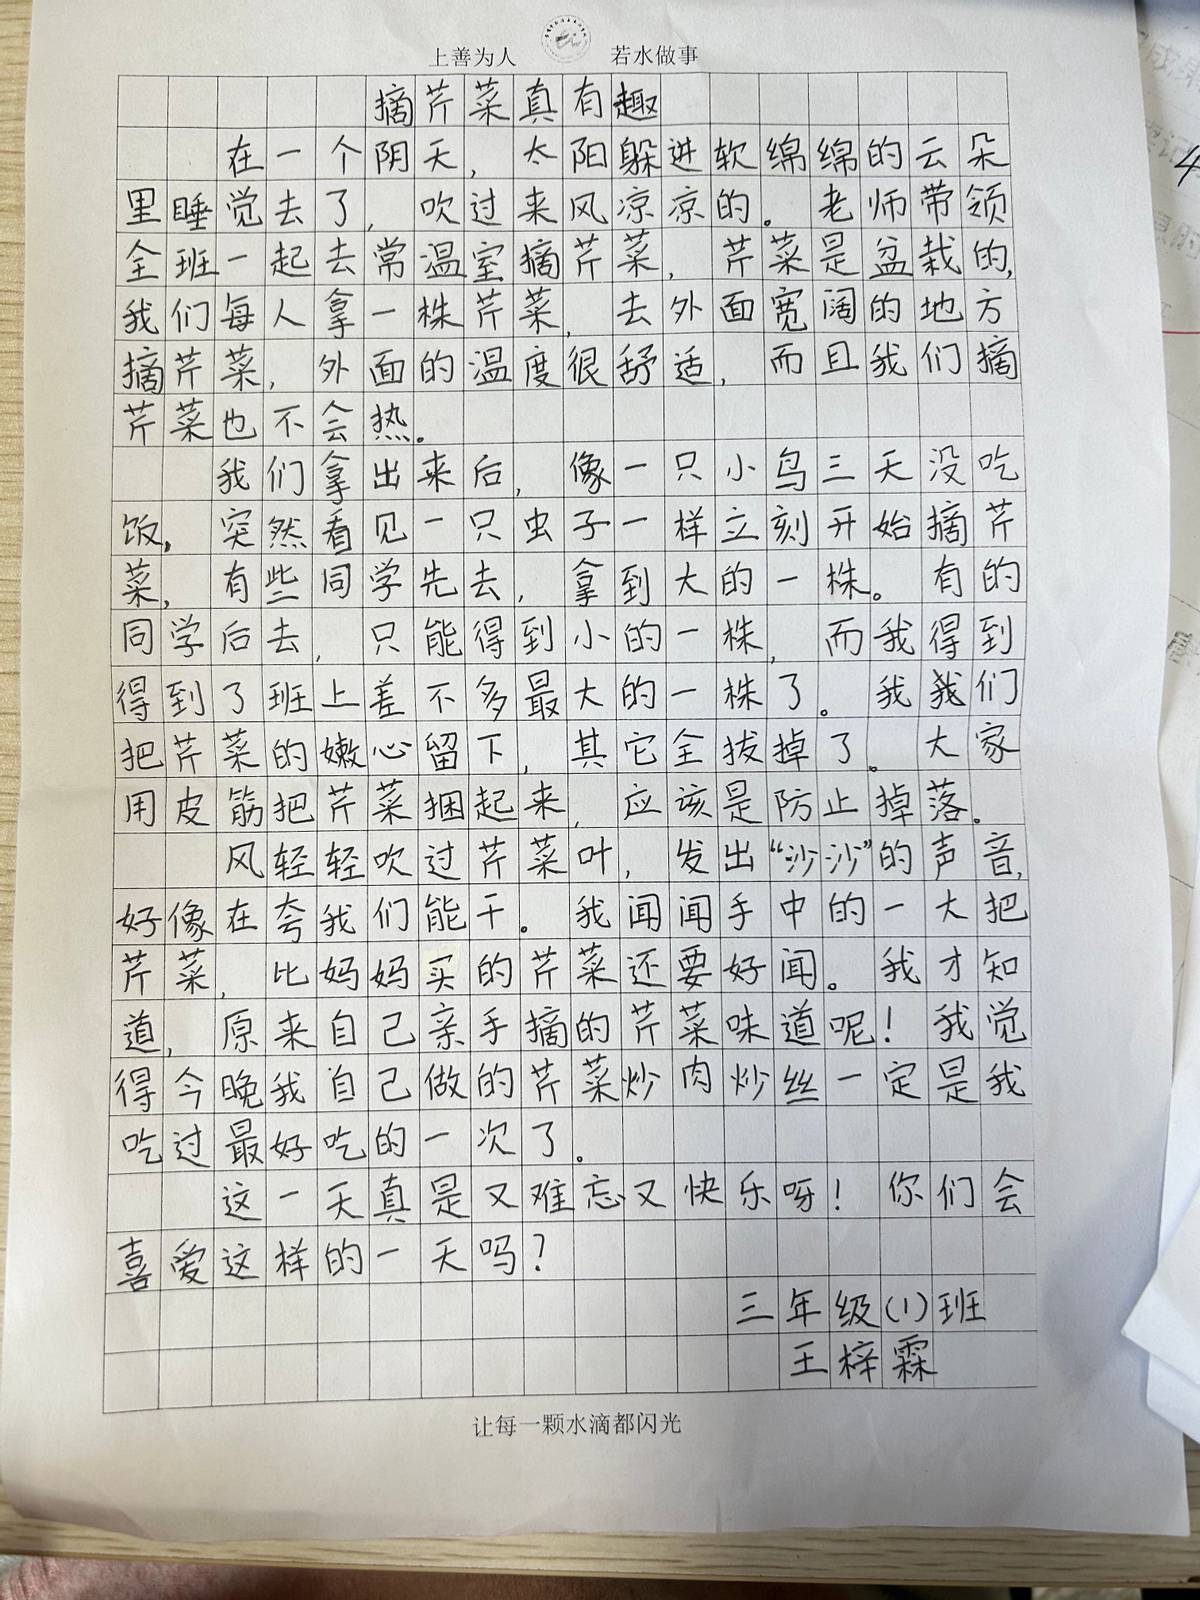 上善为人 若水做事
摘芹菜真有趣
在一个阴天，太阳躲进软绵绵的云朵
里睡觉去了，吹过来风凉凉的。老师带领
全班一起去常温室摘芹菜，芹菜是盆栽的，
我们每人拿一株芹菜，去外面宽阔的地方
摘芹菜，外面的温度很舒适，而且我们摘
芹菜也不会热。
我们拿出来后，像一只小鸟三天没吃
饭，突然看见一只虫子一样立刻开始摘芹
菜，有些同学先去，拿到大的一株。有的
同学后去，只能得到小的一株，而我得到
得到了班上差不多最大的一株了。我我们
把芹菜的嫩心留下，其它全拔掉了。大家
用皮筋把芹菜捆起来，应该是防止掉落。
风轻轻吹过芹菜叶，发出“沙沙”的声音，
好像在夸我们能干。我闻闻手中的一大把
芹菜，比妈妈买的芹菜还要好闻。我才知
道，原来自己亲手摘的芹菜味道呢！我觉
得今晚我自己做的芹菜炒肉炒丝一定是我
吃过最好吃的一次了。
这一天真是又难忘又快乐呀！你们会
喜爱这样的一天吗？
三年级(1)班
王梓霖
让每一颗水滴都闪光